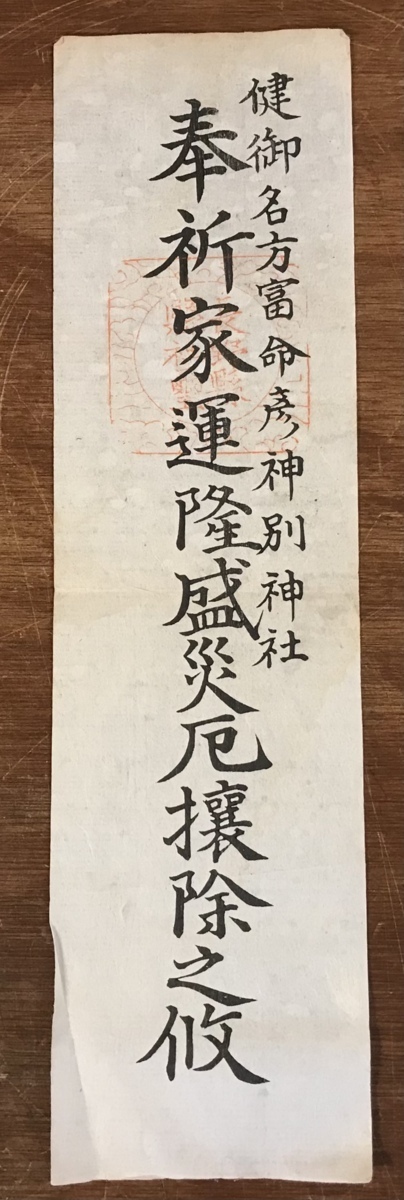 健御名方富命彦神別神社
奉祈家運隆盛災厄攘除之攸